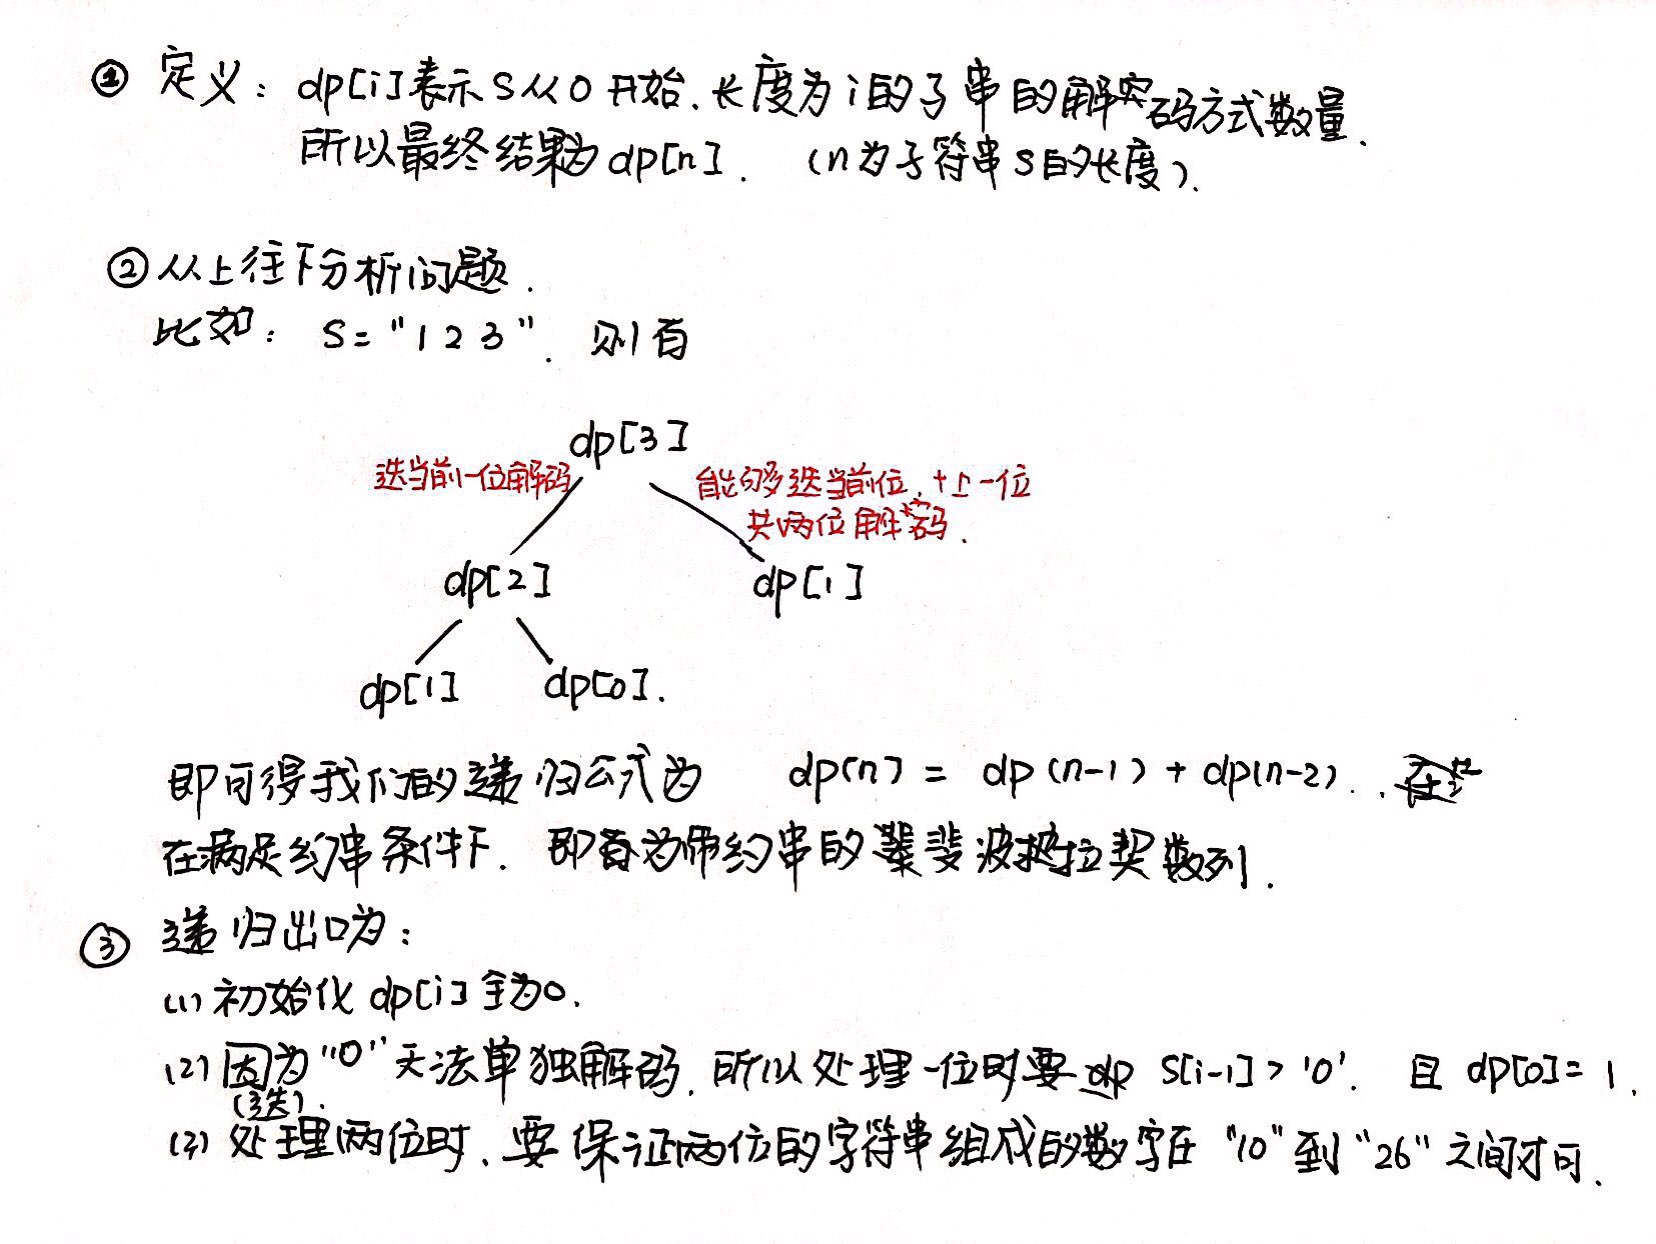 ① 定义：dp[i]表示S从0开始.长度为i的子串的解码方式数量.
所以最终结果为dp[n]. (n为子符串S的长度).
② 从上往下分析问题.
比如：S="123". 则有
dp[3]
选当前一位解码 能够选当前位.+上一位
共两位解码.
dp[2] dp[1]
dp[1] dp[0].
即可得我们的递归公式为 dp(n) = dp(n-1) + dp(n-2).
在满足约串条件下. 即为带约串的斐波拉契数列.
③ 递归出口为：
(1) 初始化 dp[i] 全为0.
(2) 因为"0"无法单独解码.所以处理一位时要 S[i-1] > '0'. 且 dp[0] = 1.
(选).
(3) 处理两位时.要保证两位的字符串组成的数字在"10"到"26"之间才可.